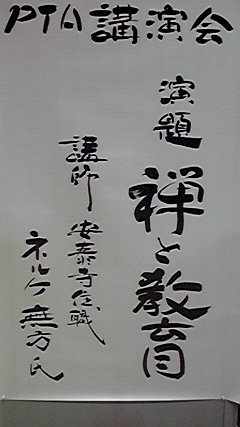 PTA講演会
演題
禅と教育
講師 安泰寺住職
ネルケ無方氏